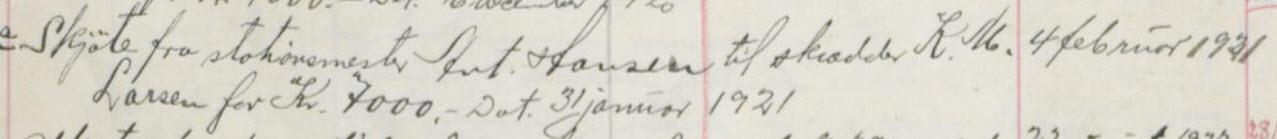 Skjøte fra stationsmester Ant. Hansen til skrædder K. M. 4 februar 1921
Larsen for Kr. 7000.- Dat. 31 januar 1921